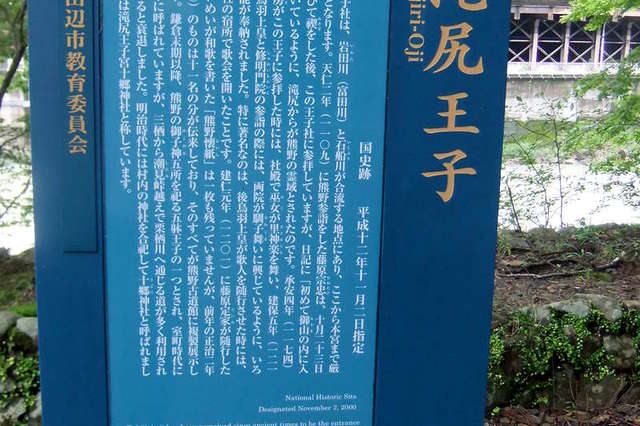 滝尻王子
iri-Oji
国史跡　平成十二年十一月二日指定
王子社は、岩田川（富田川）と石船川が合流する地点にあり、ここから本宮まで厳
となります。天仁二年（一一〇九）に熊野参詣をした藤原宗忠は、十月二十三日
びで禊をした後、この王子社に参拝していますが、日記に「初めて御山の内に入
いているように、滝尻からが熊野の霊域とされたのです。承安四年（一一七四）
房がこの王子に参拝した時には、社殿で巫女が里神楽を舞い、建保五年（一二一
鳥羽上皇と修明門院の参詣の際には、両院が馴子舞いに興じているように、いろ
能が奉納されました。特に著名なのは、後鳥羽上皇が歌人を随行させた時には、
社の宿所で歌会を開いたことです。建仁元年（一二〇一）に藤原定家が随行した
めいめいが和歌を書いた「熊野懐紙」は一枚も残っていませんが、前年の正治二年
）のものは十一名の分が伝来しており、そのすべてが熊野古道館に複製展示し
。鎌倉末期以降、熊野の御子神五所を祀る五躰王子の一つとされ、室町時代に
に呼ばれていますが、三栖から潮見峠越えで栗栖川へ通じる道が多く利用され
ると衰退しました。明治時代には村内の神社を合祀して十郷神社と呼ばれまし
は滝尻王子宮十郷神社と称しています。
田辺市教育委員会
National Historic Site
Designated November 2, 2000
ancient times to be the entrance